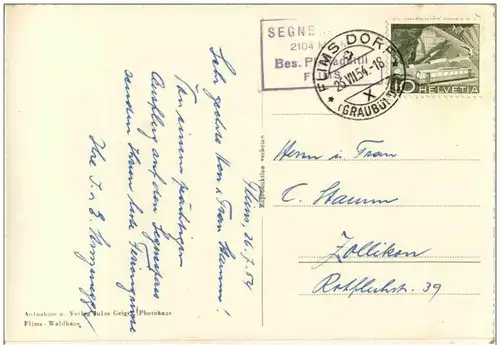 SEGNE
2104 M
Bes. P
FLIMS DORF
26.VII.54.-16
X
(GRAUBÜ
10 HELVETIA
Flims, 26.7.54
Sehr geehrte Herr u. Frau Stamm!
Von einem prächtigen
Ausflug auf den Segnespass
senden Ihnen beste Feriengrüsse
Ihre J. u. E.
Reproduktion verboten
Herrn u. Frau
C. Stamm
Zollikon
Rotfluhstr. 39
Aufnahme u. Verlag Jules Geiger, Photohaus
Flims - Waldhaus